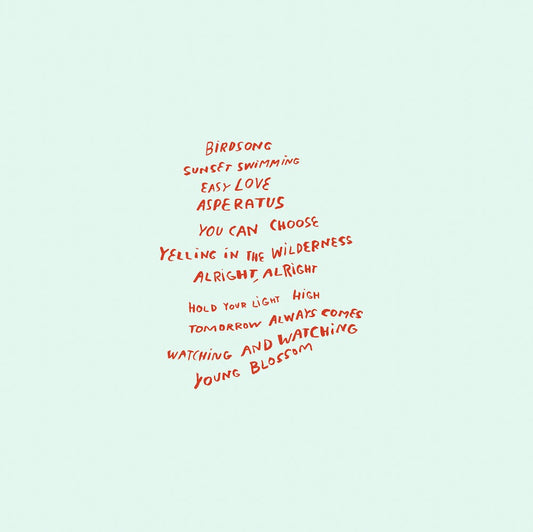 BIRDSONG
SUNSET SWIMMING
EASY LOVE
ASPERATUS
YOU CAN CHOOSE
YELLING IN THE WILDERNESS
ALRIGHT, ALRIGHT
HOLD YOUR LIGHT HIGH
TOMORROW ALWAYS COMES
WATCHING AND WATCHING
YOUNG BLOSSOM